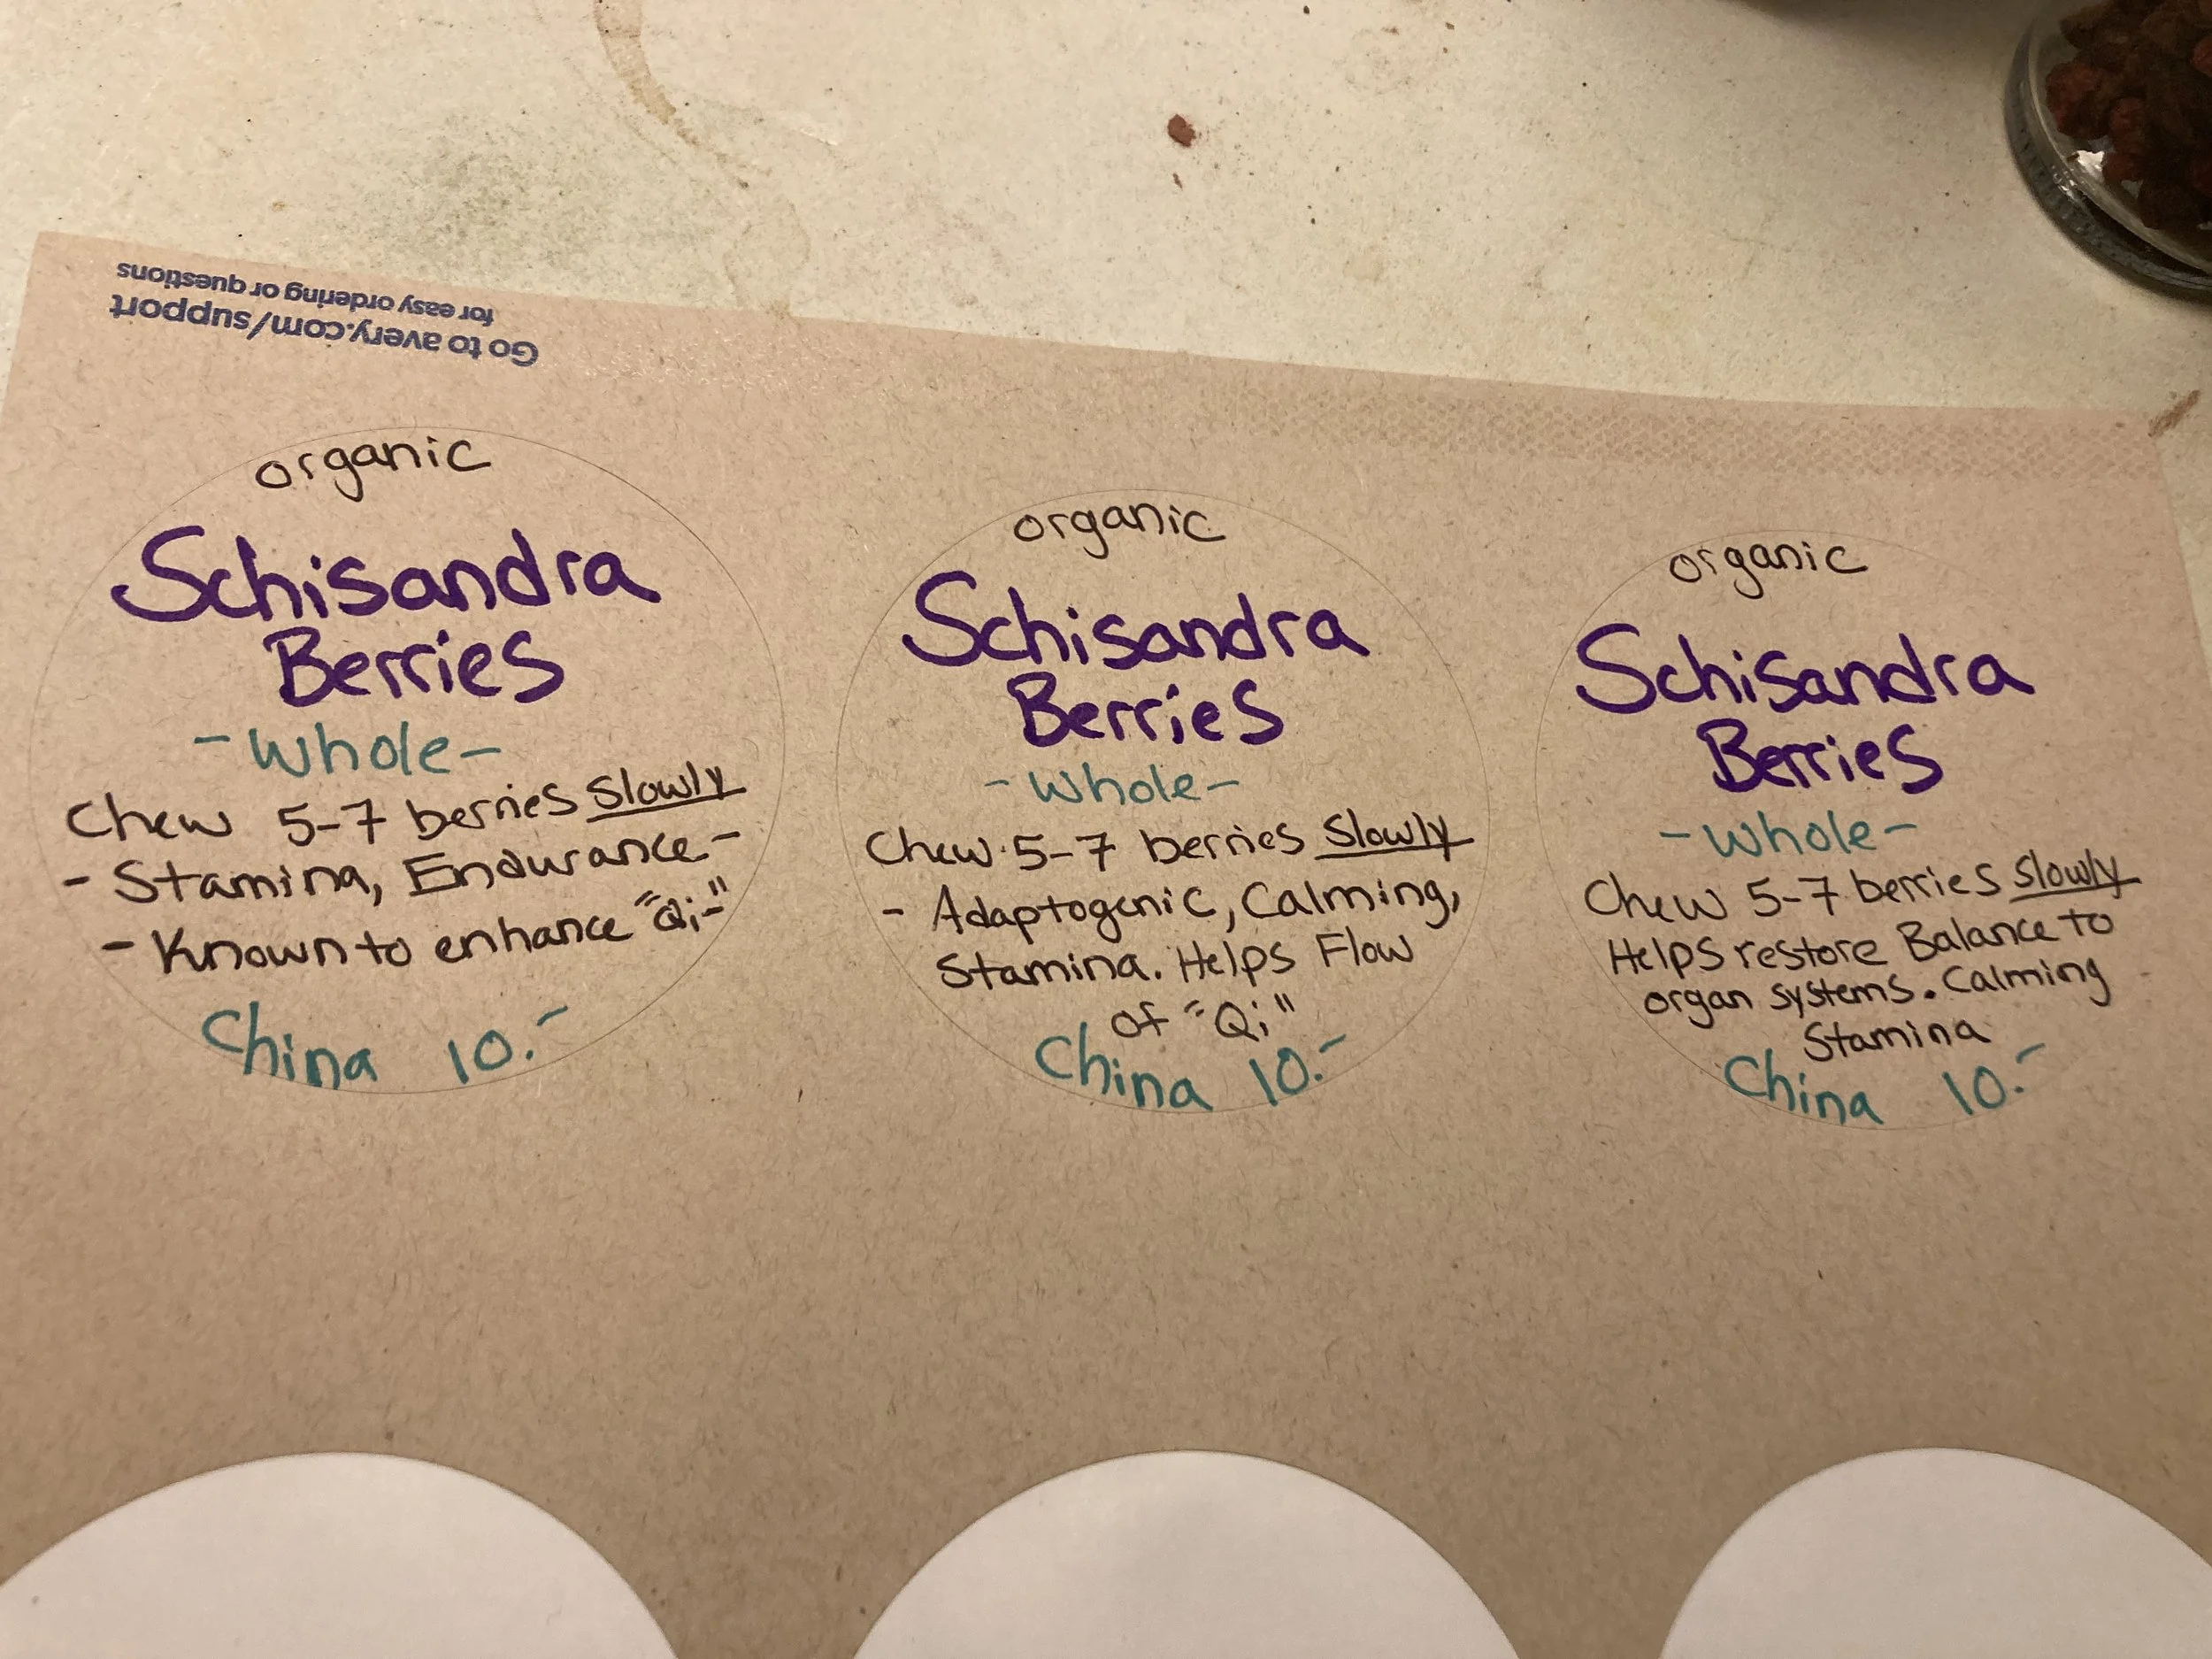 Go to avery.com/support
for easy ordering or questions
organic
Schisandra
Berries
-Whole-
Chew 5-7 berries slowly
- Stamina, Endurance-
- Known to enhance "Qi-"
China 10.-
organic
Schisandra
Berries
-Whole-
Chew 5-7 berries slowly
- Adaptogenic, Calming,
Stamina. Helps Flow
of "Qi"
China 10.-
organic
Schisandra
Berries
-Whole-
Chew 5-7 berries slowly
Helps restore Balance to
organ systems. Calming
Stamina
China 10.-